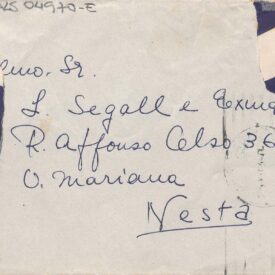 LS 04970-E
Exmo. Sr.
L. Segall e Exma
R. Affonso Celso 36
V. Mariana
Nesta